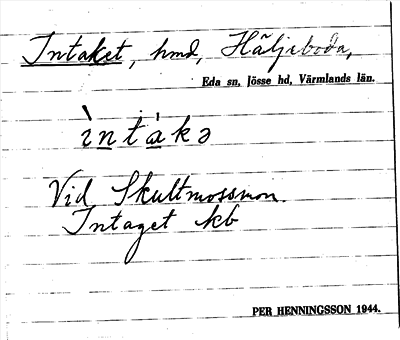 Intaket, hmd, Häljeboda,
Eda sn, Jösse hd, Värmlands län.
ìntàkə
Vid Skultmossmon.
Intaget kb
PER HENNINGSSON 1944.